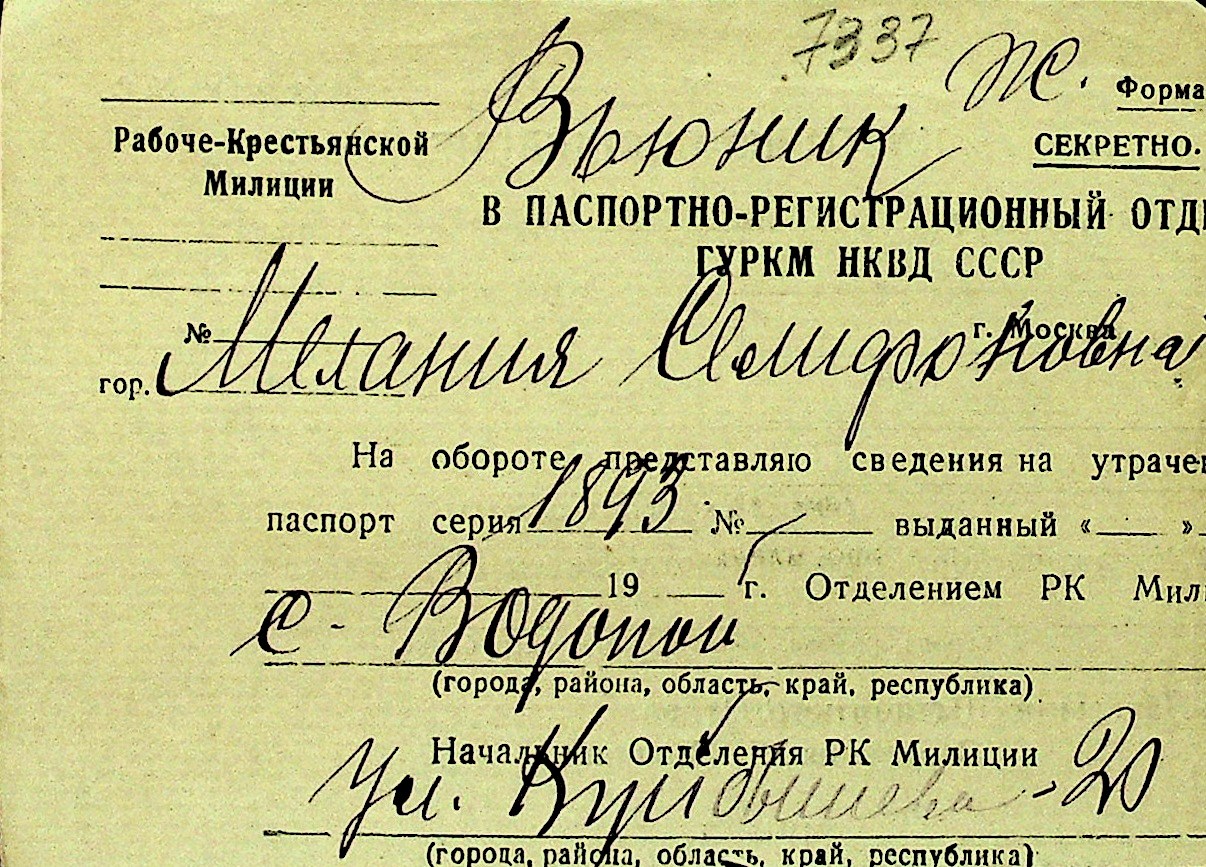 7337
Вьюник Ж. Форма
Рабоче-Крестьянской
Милиции
СЕКРЕТНО.
В ПАСПОРТНО-РЕГИСТРАЦИОННЫЙ ОТДЕ
ГУРКМ НКВД СССР
№ г. Москва
гор. Мелания Семифоновна
На обороте представляю сведения на утрачен
паспорт серия 1893 № выданный « »
19 г. Отделением РК Мили
с. Водопой
(города, района, область, край, республика)
Начальник Отделения РК Милиции
ул. Куйбышева - 20
(города, района, область, край, республика)